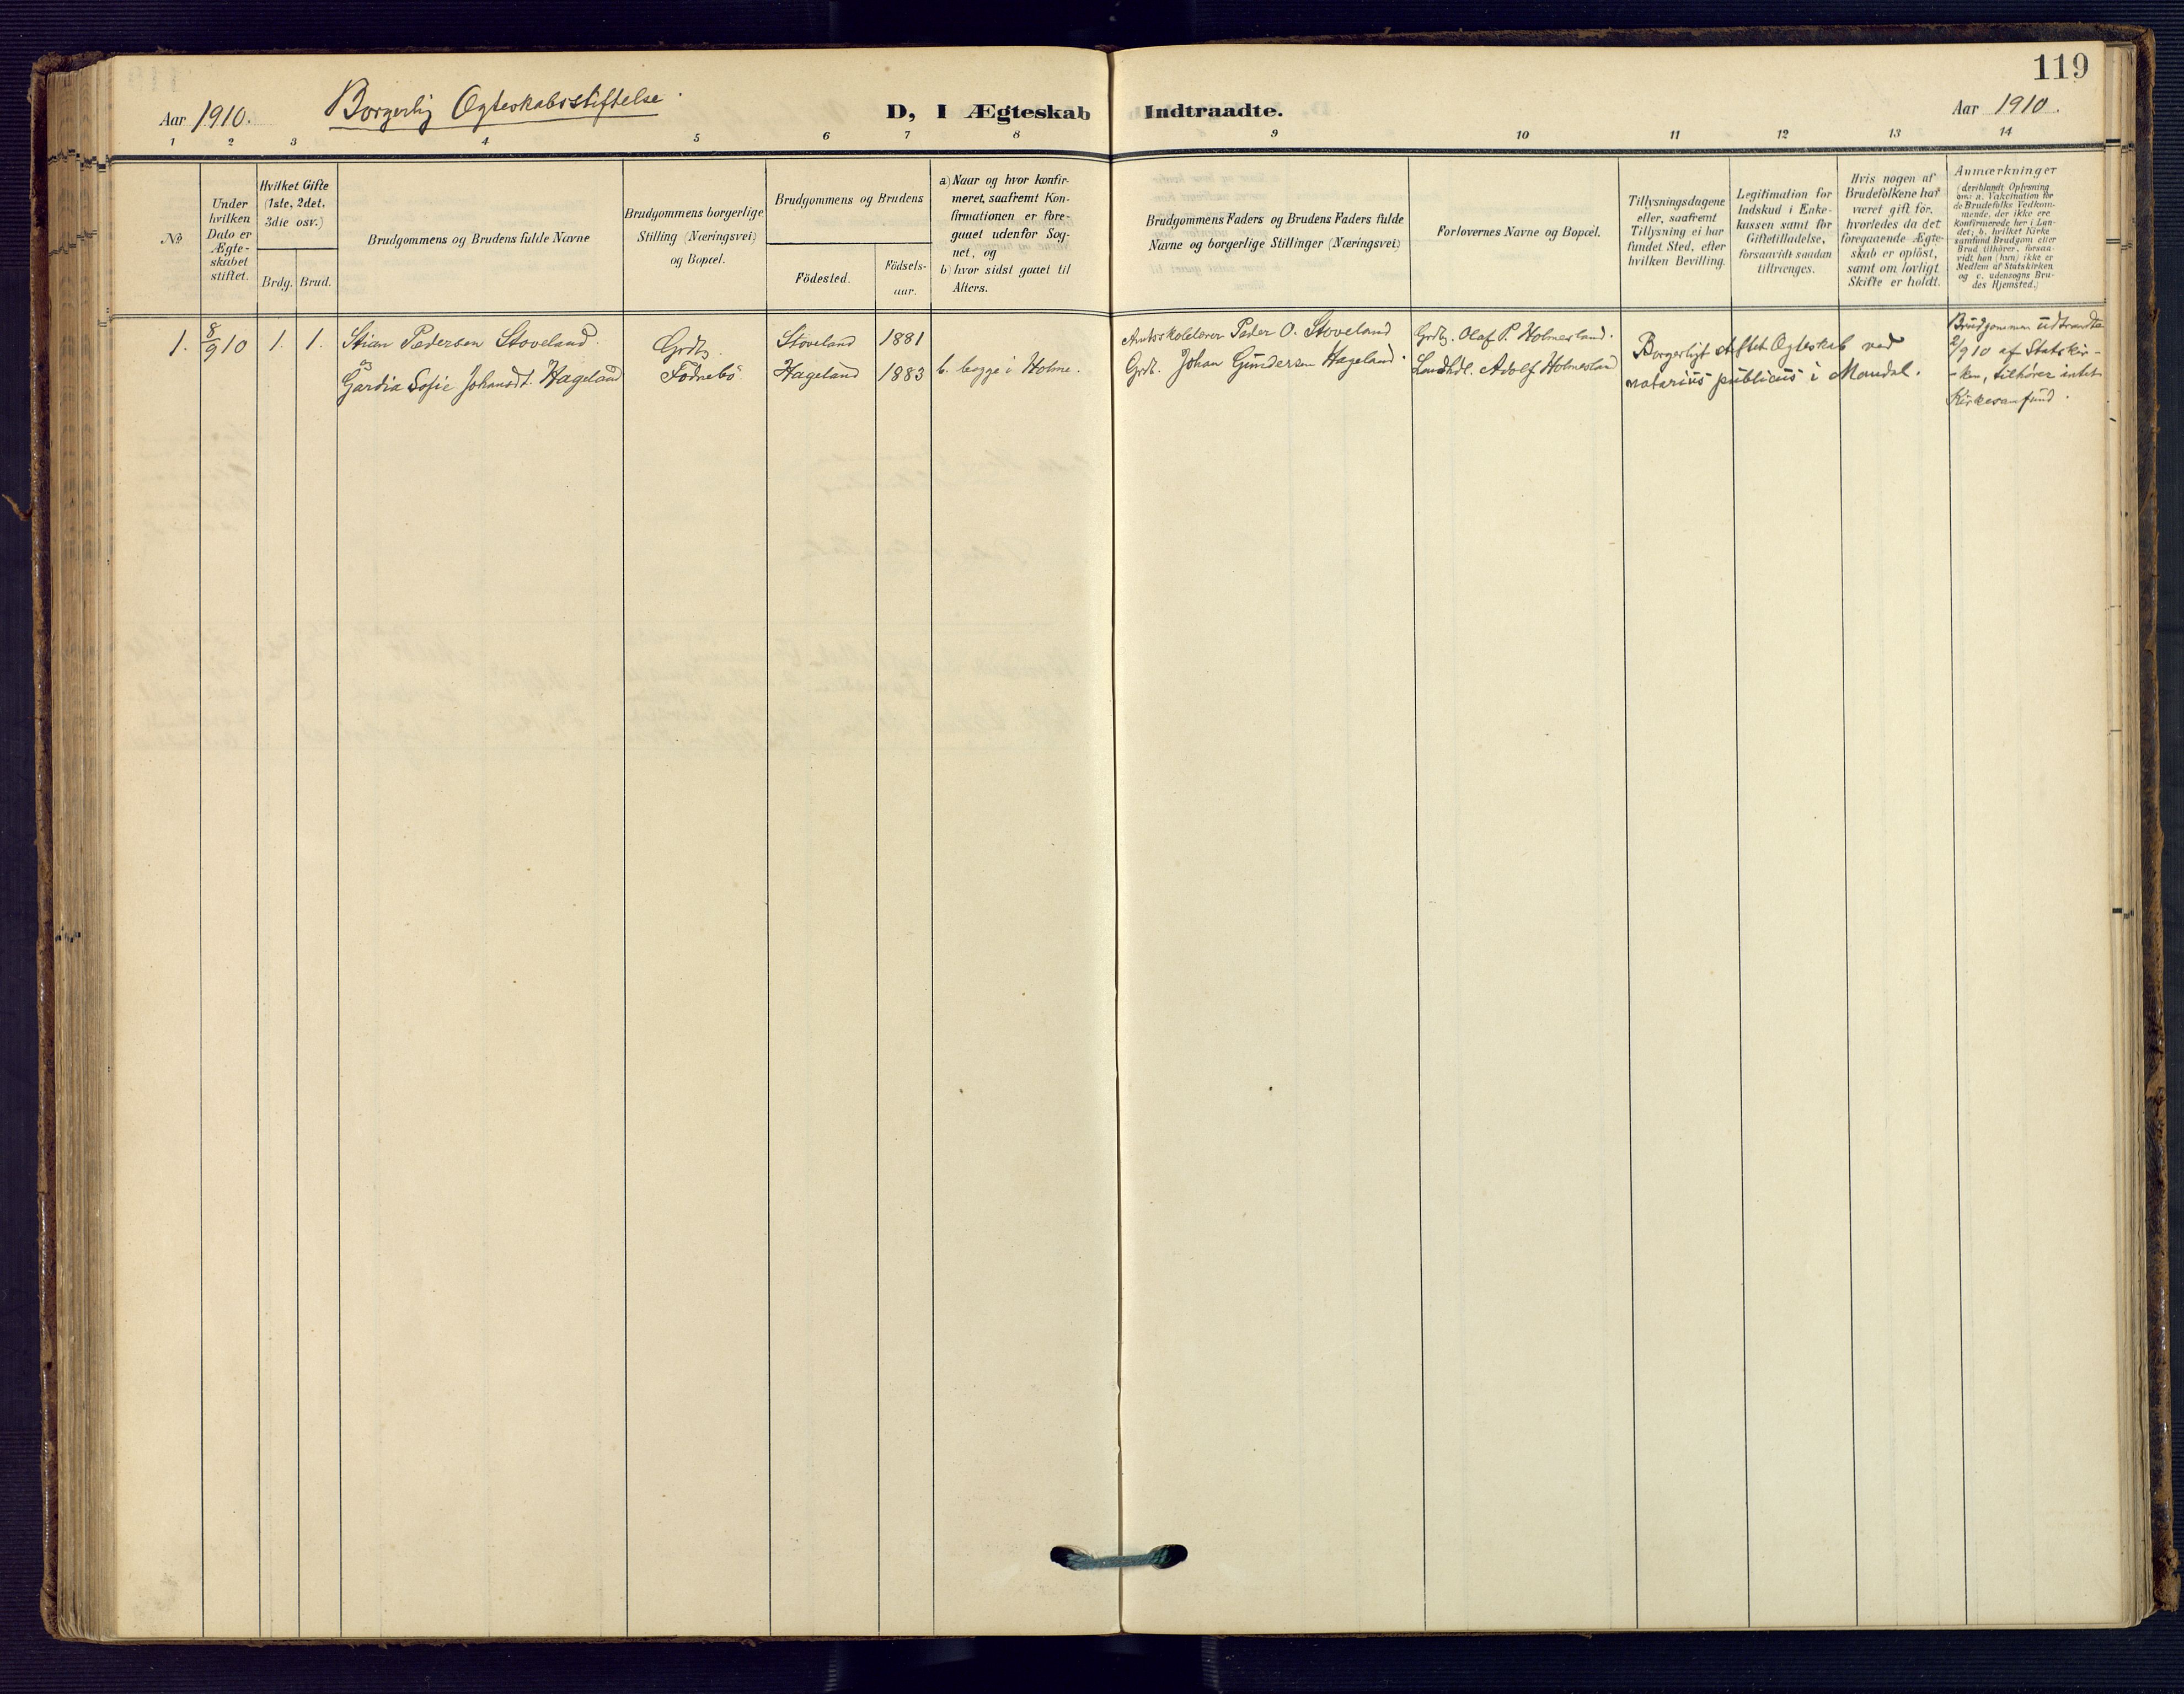 119
Aar 1910.
Borgerlig Ogteskabsstiftelse.
D, I Ægteskab Indtraadte.
Aar 1910.
1 2 3 4 5 6 7 8 9 10 11 12 13 14
№
Under
hvilken
Dato er
Ægte-
skabet
stiftet.
Hvilket Gifte
(1ste, 2det,
3die osv.)
Brdg. Brud.
Brudgommens og Brudens fulde Navne
Brudgommens borgerlige
Stilling (Næringsvei)
og Bopæl.
Brudgommens og Brudens
Födested.
Födsels-
aar.
a) Naar og hvor konfir-
meret, saafremt Kon-
firmationen er fore-
gaaet udenfor Sog-
net, og
b) hvor sidst gaaet til
Alters.
Brudgommens Faders og Brudens Faders fulde
Navne og borgerlige Stillinger (Næringsvei)
Forlovernes Navne og Bopæl.
Tillysningsdagene
eller, saafremt
Tillysning ei har
fundet Sted, efter
hvilken Bevilling.
Legitimation for
Indskud i Enke-
kassen samt for
Giftetilladelse,
forsaavidt saadan
tiltrænges.
Hvis nogen af
Brudefolkene har
været gift för,
hvorledes da det
foregaaende Ægte-
skab er oplöst,
samt om lovligt
Skifte er holdt.
Anmærkninger
(deriblandt Oplysning
om: a. Vakcination for
de Brudefolks Vedkom-
mende, der ikke ere
Konfirmerede her i Lan-
det; b. hvilket Kirke
samfund Brudgom eller
Brud tilhörer, forsaa-
vidt han (hun) ikke er
Medlem af Statskirken
og c. udensogns Bru-
des Hjemsted.)
1. 8/9 10 1. 1. Stian Pedersen Stoveland. Grdb. Stoveland 1881
og
Gardia Sofie Johansdt. Hageland Fodnebö Hageland 1883 b. begge i Holme.
Amtsskolelærer Peder O. Stoveland Grdb. Olaf P. Holmesland.
Grdb. Johan Gundersen Hageland. Landhdl. Adolf Holmesland
Borgerligt stiftet Ogteskab ved
notarius publicus i Mandal.
Brudgommen udtraadte
2/9 10 af Statskir-
-ken, tilhörer intet
Kirkesamfund.